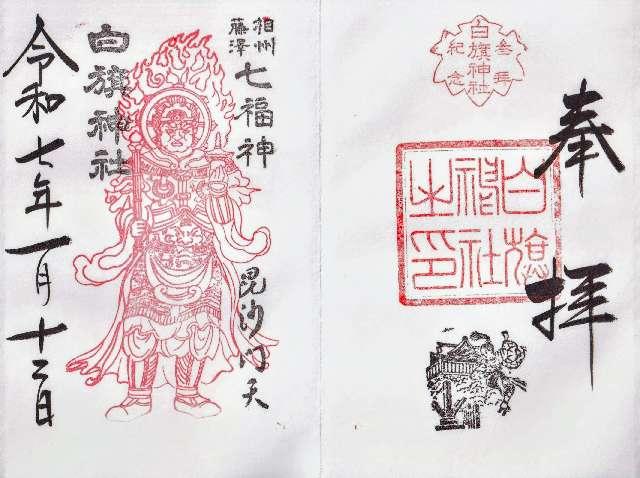 奉拝
参拝
白旗神社
紀念
白旗
神社
之印
相州
藤澤
七福神
毘沙門天
白旗神社
令和七年一月十二日